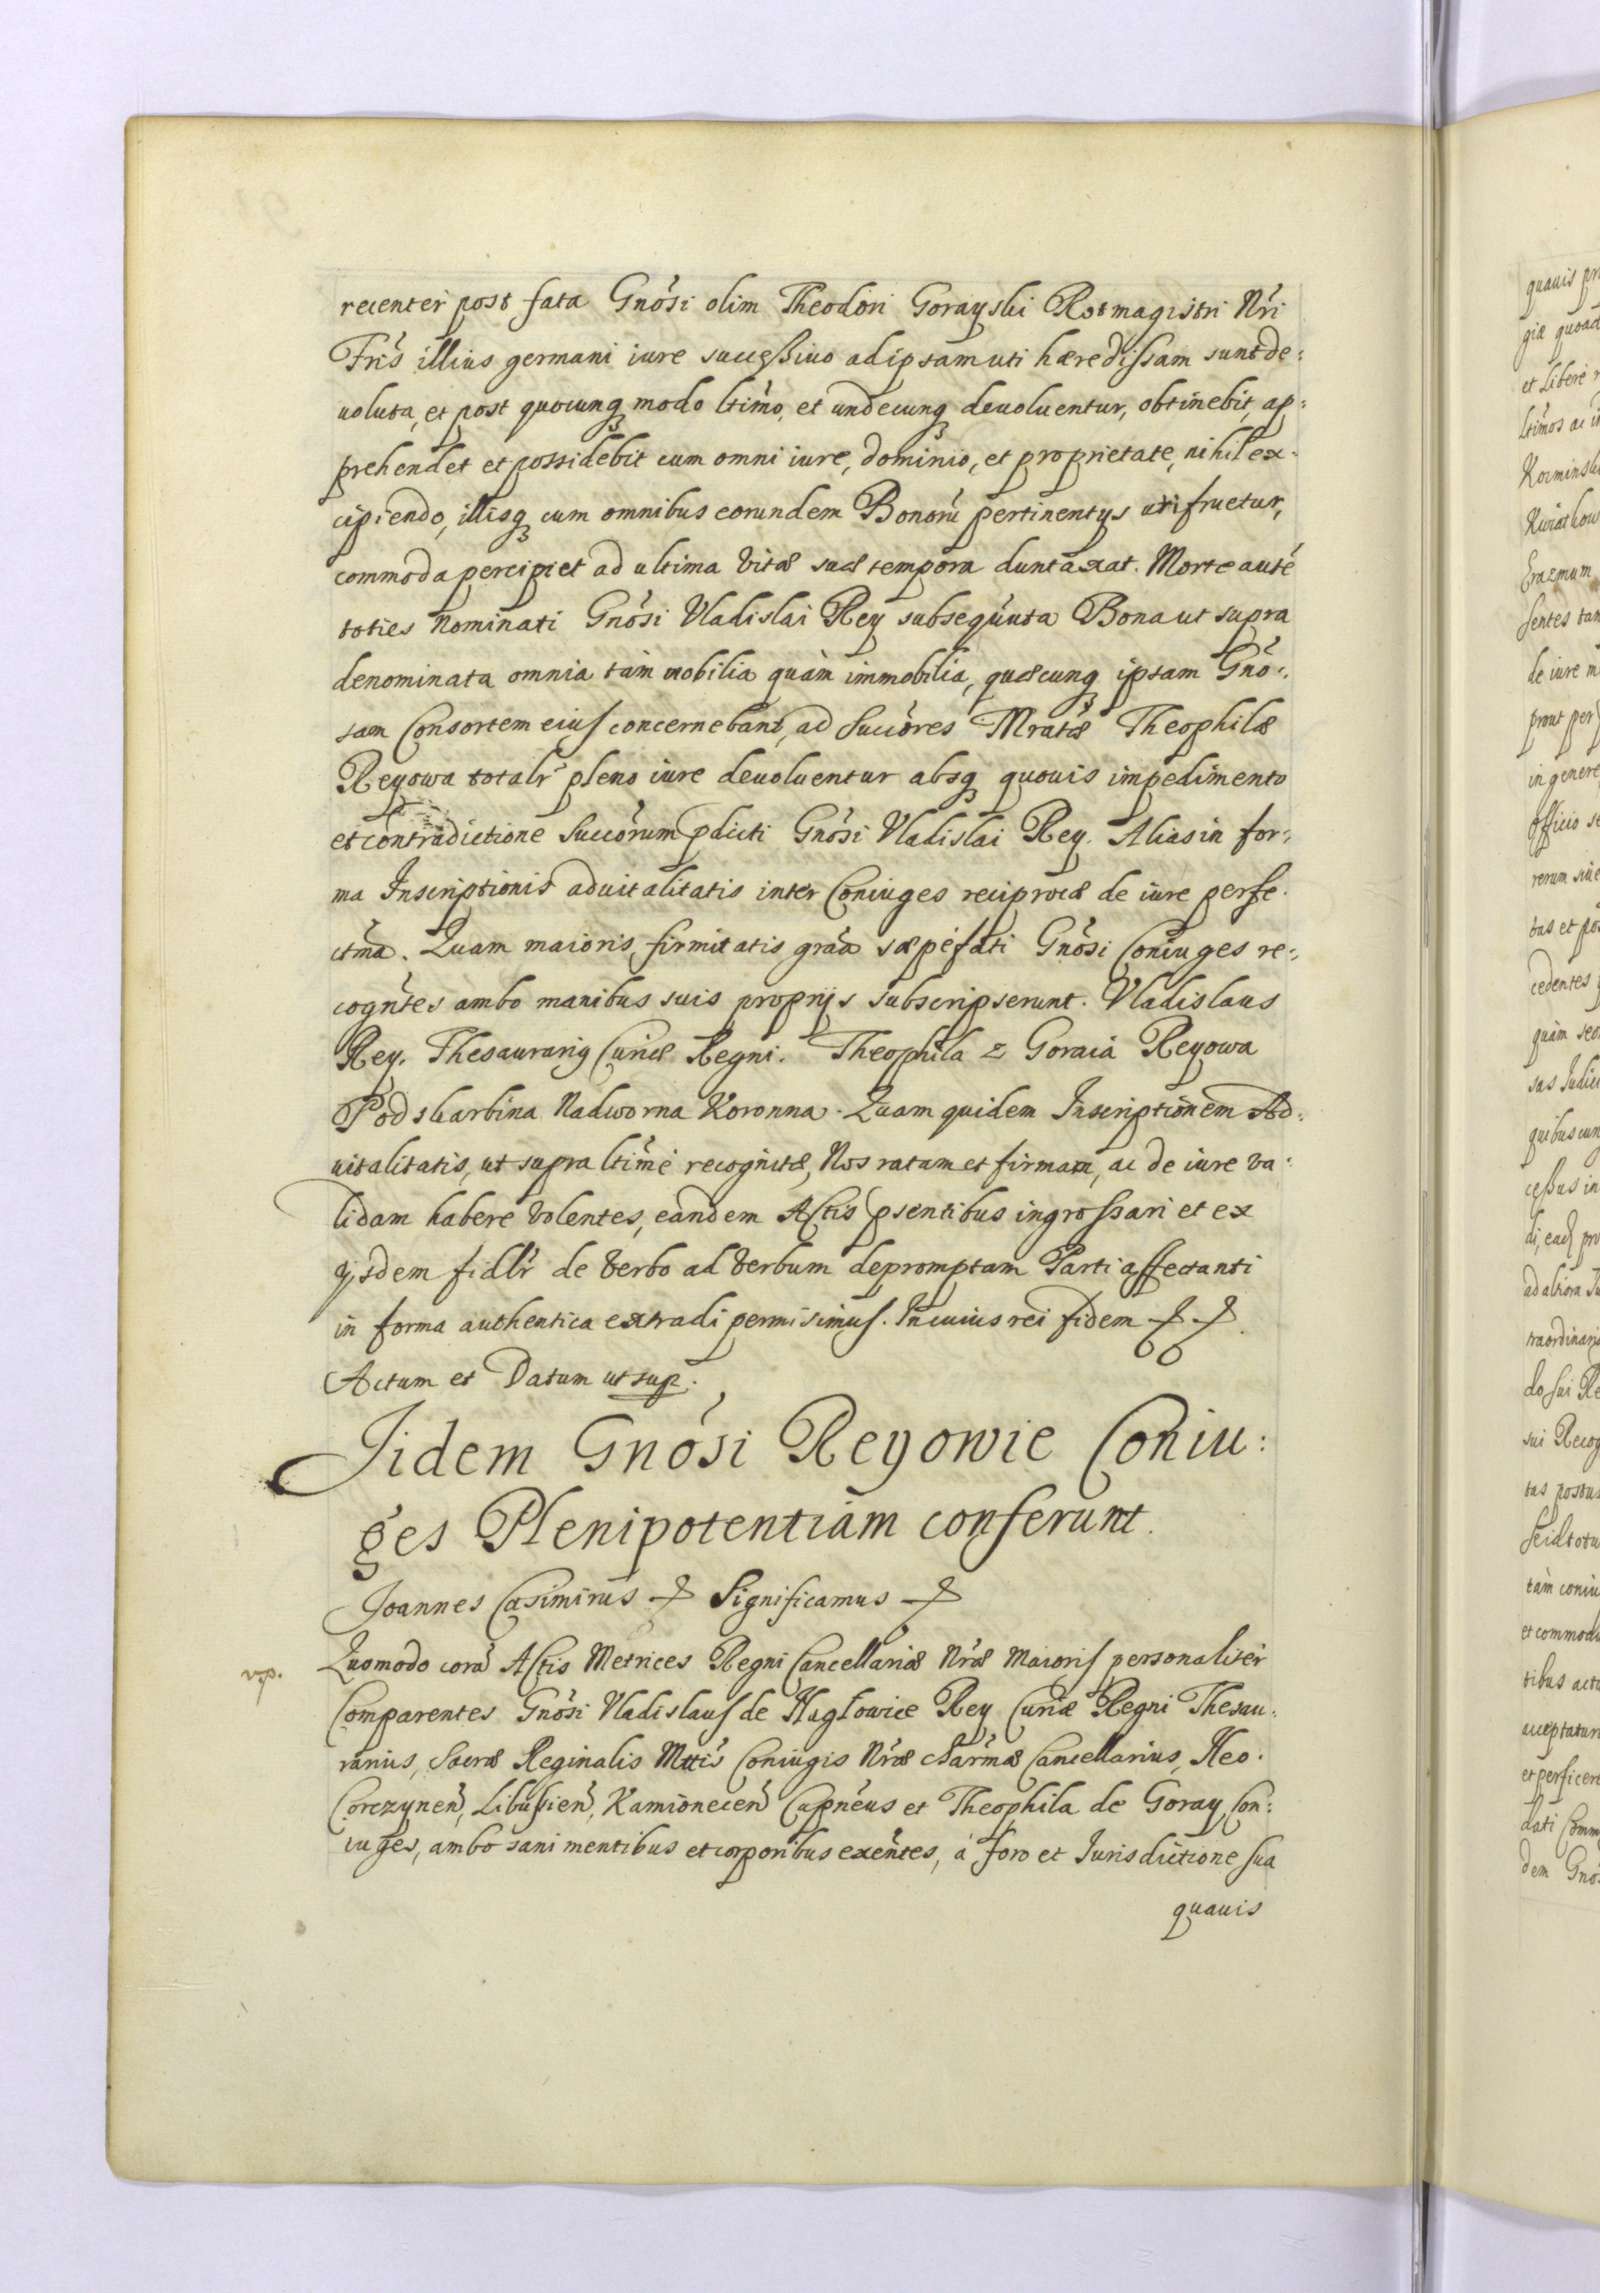 recenter post fata Gnósi olim Theodori Gorayski Rotmagistri Nri
Fris illius germani iure successiuo ad ipsam uti hæredissam sunt de:
uoluta, et post quocunq modo ltimo, et undecunq deuoluentur, obtinebit, ap:
prehendet et possidebit cum omni iure, dominio, et proprietate, nihil ex:
cipiendo, illisq cum omnibus eorundem Bonorū pertinentijs utifruetur,
commoda percipiet ad ultima vitæ suæ tempora duntaxat. Morte autē
toties nominati Gnósi Vladislai Rey subsequuta Bona ut supra
denominata omnia tàm mobilia quàm immobilia, quæcunq ipsam Gnó:
sam Consortem eius concernebant, ad Succóres Mratæ Theophilæ
Reyowa totalr pleno iure deuoluentur absq quouis impedimento
et contradictione Succórum pdicti Gnósi Vladislai Rey. Alias in for:
ma Inscriptionis aduitalitatis inter Coniuges reciprocæ de iure perfe:
ctma. Quam maioris firmitatis gráa sæpefati Gnósi Coniuges re:
cogntes ambo manibus suis proprijs subscripserunt. Vladislaus
Rey. Thesaurarig Curiæ Regni. Theophila z Goraia Reyowa
Podskarbina Nadworna Koronna. Quam quidem Inscriptionem Ad:
uitalitatis, ut supra ltime recognitæ, Nos ratam et firmam, ac de iure va:
lidam habere volentes, eandem Actis psentibus ingrossari et ex
ijsdem fidlr de verbo ad verbum depromptam Parti affectanti
in forma authentica extradi permisimus. In cuius rei fidem
Actum et Datum ut sup.
Jidem Gnósi Reyowie Coniu:
ges Plenipotentiam conferunt.
Joannes Casimirus Significamus
Quomodo corā Actis Metrices Regni Cancellariæ Nræ Maioris personaliter
vsp.
Comparentes Gnósi Vladislaus de Nagłowice Rey Curiæ Regni Thesau:
rarius, Sacræ Reginalis Mttis Coniugis Nræ charmæ Cancellarius, Neo:
Corczynen, Libusien, Kamionecen Capneus et Theophila de Goray Con:
iuges, ambo sani mentibus et corporibus exentes, à foro et Jurisdictione sua
quauis